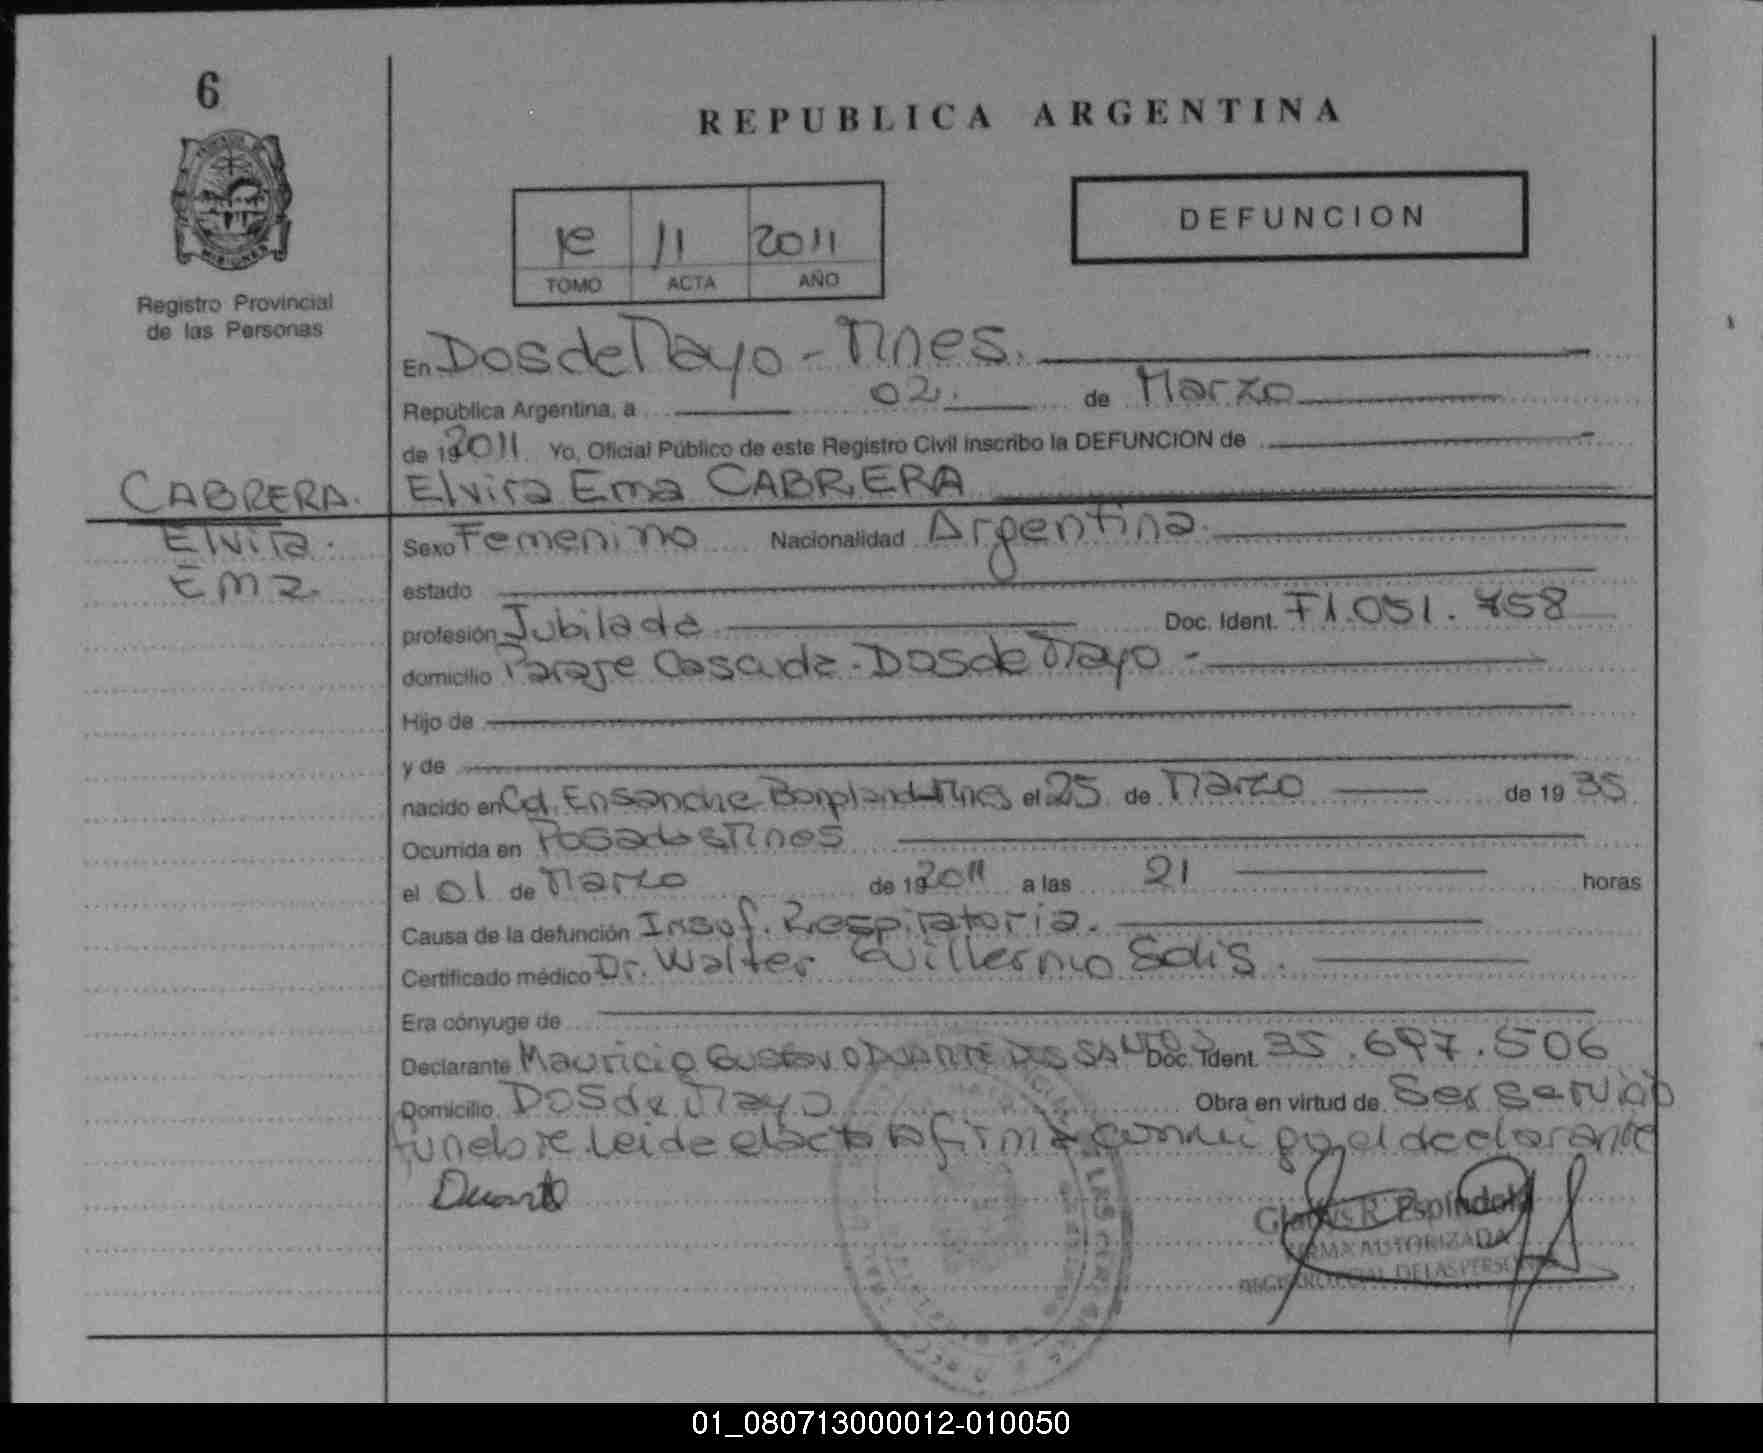 6
REPUBLICA ARGENTINA
DEFUNCION
1º 11 2011
TOMO ACTA AÑO
Registro Provincial
de las Personas
En Dos de Mayo - Mnes.
República Argentina, a 02. de Marzo
de 19 2011 Yo, Oficial Público de este Registro Civil inscribo la DEFUNCION de
CABRERA. Elvira Ema CABRERA
Elvira. Sexo Femenino Nacionalidad Argentina.
Ema. estado
profesión Jubilada Doc. Ident. F1.051.758
domicilio Paraje Cascada - Dos de Mayo -
Hijo de
y de
nacido en Col. Ensanche Bonpland-Mnes el 25 de Marzo de 19 35
Ocurrida en Posadas Mnes
el 01 de Marzo de 19 2011 a las 21 horas
Causa de la defunción Insuf. Respiratoria.
Certificado médico Dr. Walter Guillermo Solis.
Era cónyuge de
Declarante Mauricio Gustavo DUARTE DOS SANTOS Doc. Ident. 35.697.506
Domicilio Dos de Mayo Obra en virtud de Ser servicio
funebre leida el acta la firma conmigo el declarante
Duarte
Gladys R. Espindola
FIRMA AUTORIZADA
REGISTRO PCIAL DE LAS PERSONAS
01_080713000012-010050